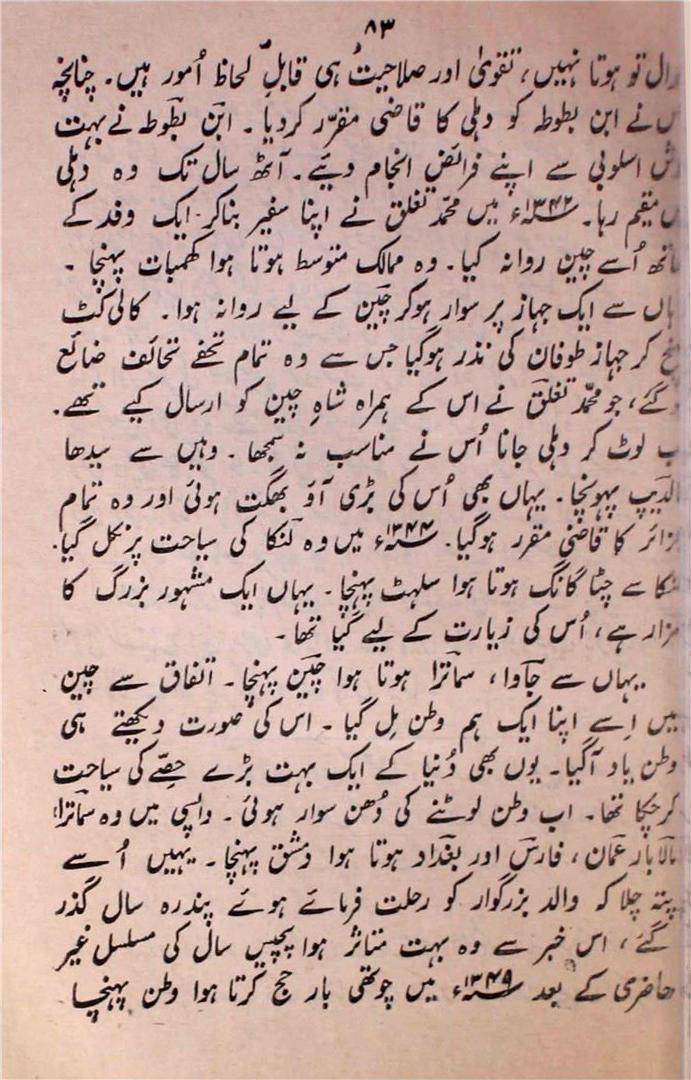 ۸۳
سوال تو ہوتا نہیں، تقویٰ اور صلاحیت ہی قابلِ لحاظ اُمور ہیں۔ چنانچہ
اس نے ابن بطوطہ کو دہلی کا قاضی مقرّر کردیا۔ ابن بطوطہ نے بہت
خوش اسلوبی سے اپنے فرائض انجام دیئے۔ آٹھ سال تک وہ دہلی
میں مقیم رہا۔ ۱۳۴۲ء میں محمّد تغلق نے اپنا سفیر بناکر ایک وفد کے
ساتھ اُسے چین روانہ کیا۔ وہ ممالک متوسط ہوتا ہوا کھمبات پہنچا۔
وہاں سے ایک جہاز پر سوار ہوکر چین کے لیے روانہ ہوا۔ کالی کٹ
پہنچ کر جہاز طوفان کی نذر ہوگیا جس سے وہ تمام تحفے تحائف ضائع
ہوگئے، جو محمّد تغلق نے اس کے ہمراہ شاہِ چین کو ارسال کیے تھے۔
اب لوٹ کر دہلی جانا اُس نے مناسب نہ سمجھا۔ وہیں سے سیدھا
مالدیپ پہونچا۔ یہاں بھی اُس کی بڑی آؤ بھگت ہوئی اور وہ تمام
جزائر کا قاضی مقرر ہوگیا۔ ۱۳۴۴ء میں وہ لنکا کی سیاحت پر نکل گیا۔
لنکا سے چٹاگانگ ہوتا ہوا سلہٹ پہنچا۔ یہاں ایک مشہور بزرگ کا
مزار ہے، اُس کی زیارت کے لیے گیا تھا۔
یہاں سے جاوا، سماترا ہوتا ہوا چین پہنچا۔ اتفاق سے چین
میں اِسے اپنا ایک ہم وطن مل گیا۔ اس کی صورت دیکھتے ہی
وطن یاد آگیا۔ یوں بھی دُنیا کے ایک بہت بڑے حصّے کی سیاحت
کرچکا تھا۔ اب وطن لوٹنے کی دُھن سوار ہوئی۔ واپسی میں وہ سماترا،
مالابار عمان، فارس اور بغداد ہوتا ہوا دمشق پہنچا۔ یہیں اُسے
پتہ چلا کہ والد بزرگوار کو رحلت فرمائے ہوئے پندرہ سال گذر
گئے، اس خبر سے وہ بہت متاثر ہوا پچیس سال کی مسلسل غیر
حاضری کے بعد ۱۳۴۹ء میں چوتھی بار حج کرتا ہوا وطن پہنچا